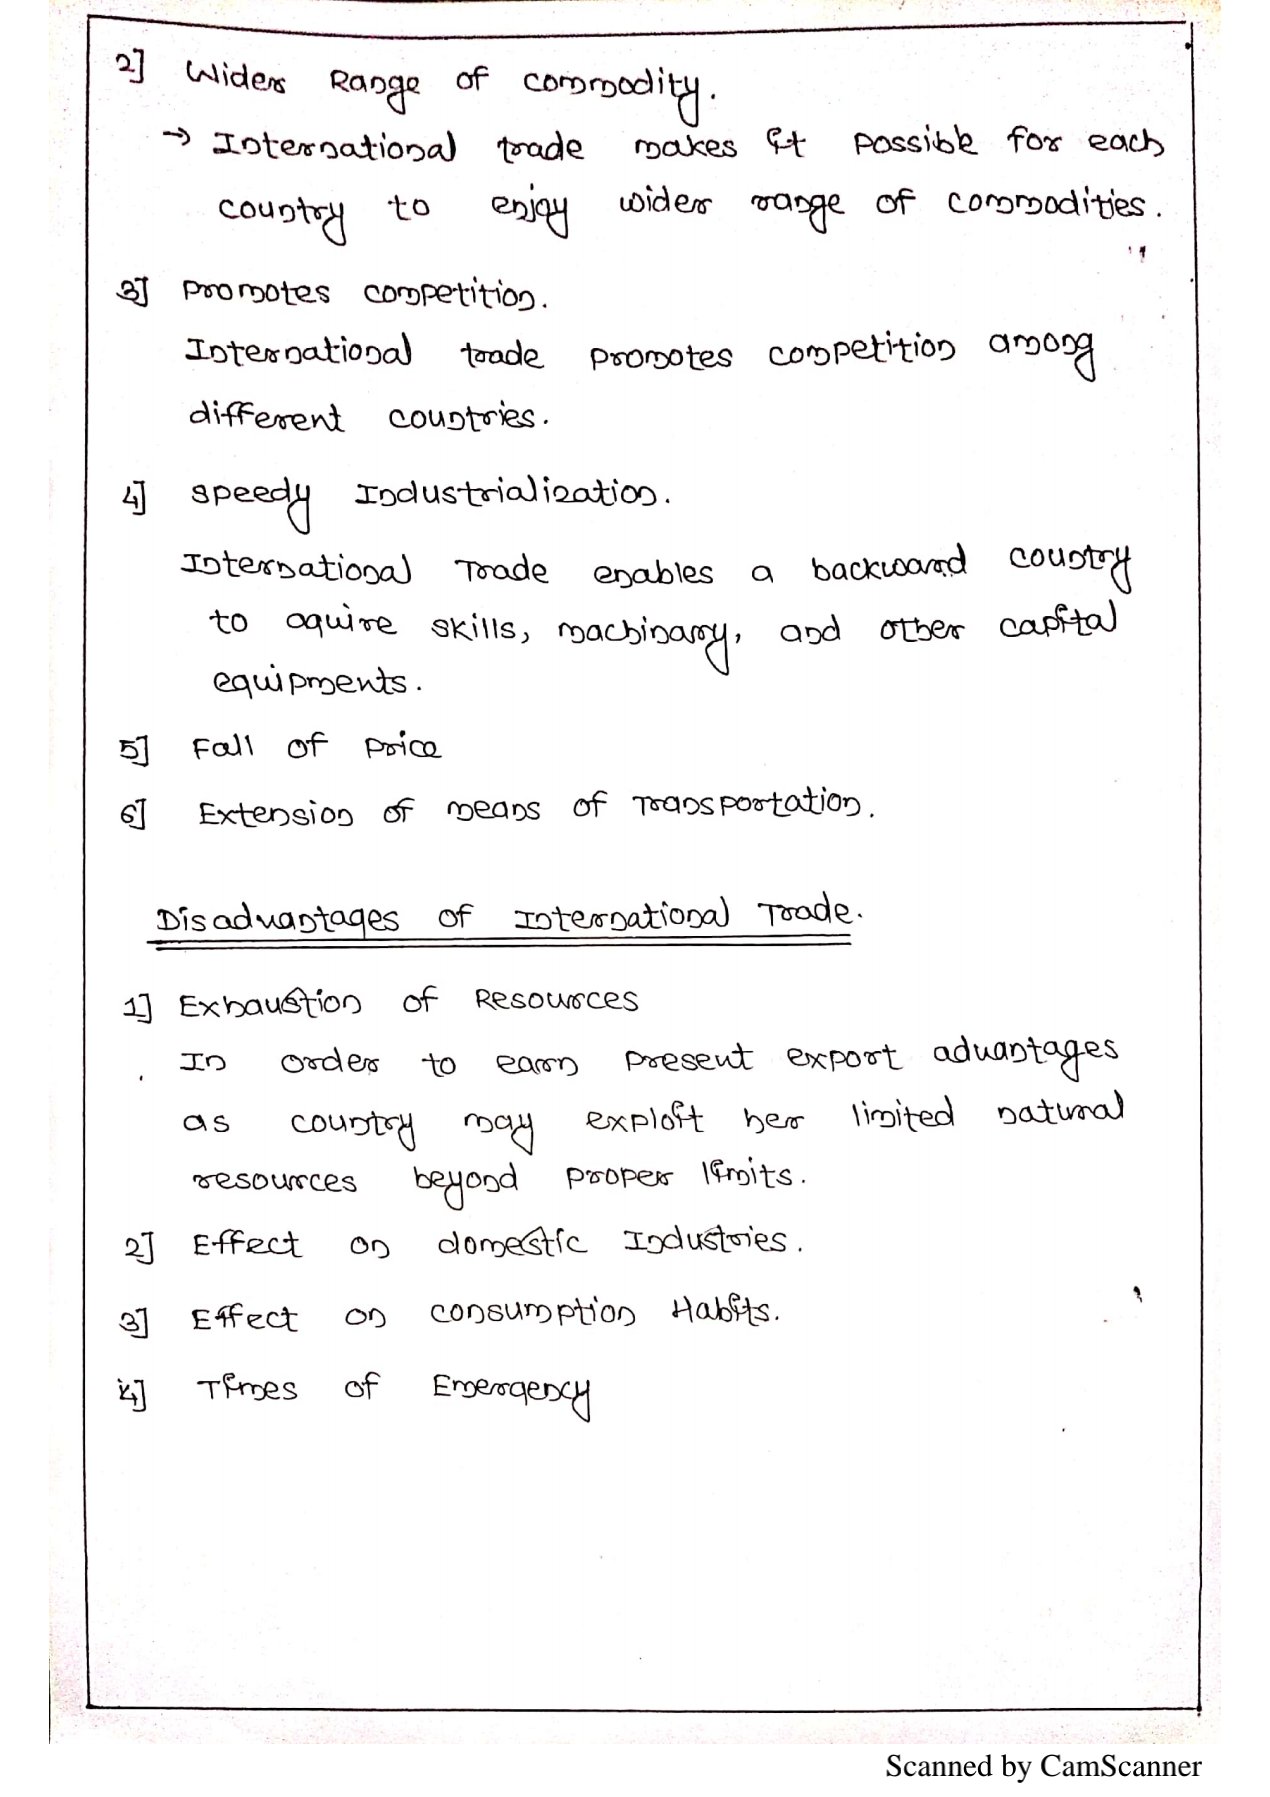 2] Wider Range of commodity.
→ International trade makes it possible for each
country to enjoy wider range of commodities.
3] promotes competition.
International trade promotes competition among
different countries.
4] speedy Industrialization.
International Trade enables a backward country
to aquire skills, machinary, and other capital
equipments.
5] Fall of price
6] Extension of means of Transportation.
Disadvantages of International Trade.
1] Exhaustion of Resources
In order to earn present export advantages
as country may exploit her limited natural
resources beyond proper limits.
2] Effect on domestic Industries.
3] Effect on consumption Habits.
4] Times of Emergency
Scanned by CamScanner